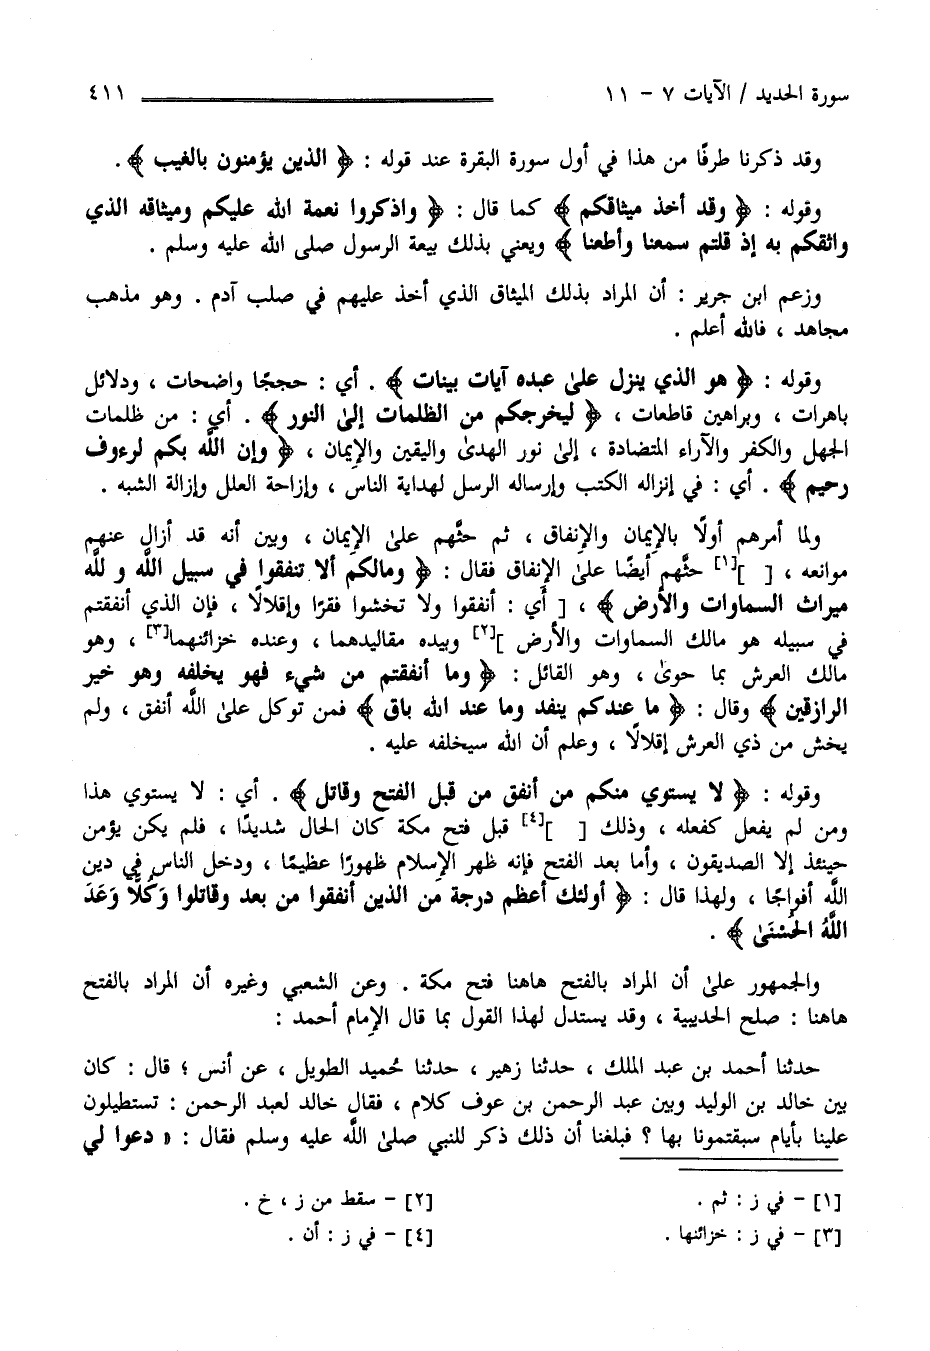 سورة الحديد / الآيات ٧ - ١١ ٤١١
وقد ذكرنا طرفًا من هذا في أول سورة البقرة عند قوله : ﴿ الذين يؤمنون بالغيب ﴾ .
وقوله : ﴿ وقد أخذ ميثاقكم ﴾ كما قال : ﴿ واذكروا نعمة الله عليكم وميثاقه الذي
واثقكم به إذ قلتم سمعنا وأطعنا ﴾ ويعني بذلك بيعة الرسول صلى الله عليه وسلم .
وزعم ابن جرير : أن المراد بذلك الميثاق الذي أخذ عليهم في صلب آدم . وهو مذهب
مجاهد ، فالله أعلم .
وقوله : ﴿ هو الذي ينزل علىٰ عبده آيات بينات ﴾ . أي : حججًا واضحات ، ودلائل
باهرات ، وبراهين قاطعات ، ﴿ ليخرجكم من الظلمات إلىٰ النور ﴾ . أي : من ظلمات
الجهل والكفر والآراء المتضادة ، إلىٰ نور الهدىٰ واليقين والإيمان ، ﴿ وإن اللَّه بكم لرءوف
رحيم ﴾ . أي : في إنزاله الكتب وإرساله الرسل لهداية الناس ، وإزاحة العلل وإزالة الشبه .
ولما أمرهم أولًا بالإيمان والإنفاق ، ثم حثَّهم علىٰ الإيمان ، وبين أنه قد أزال عنهم
موانعه ، [ ][١] حثَّهم أيضًا علىٰ الإنفاق فقال : ﴿ ومالكم ألا تنفقوا في سبيل اللَّه و للَّه
ميراث السماوات والأرض ﴾ ، [ أي : أنفقوا ولا تخشوا فقرًا وإقلالًا ، فإن الذي أنفقتم
في سبيله هو مالك السماوات والأرض ][٢] وبيده مقاليدهما ، وعنده خزائنهما[٣] ، وهو
مالك العرش بما حوىٰ ، وهو القائل : ﴿ وما أنفقتم من شيء فهو يخلفه وهو خير
الرازقين ﴾ وقال : ﴿ ما عندكم ينفد وما عند الله باق ﴾ فمن توكل علىٰ اللَّه أنفق ، ولم
يخش من ذي العرش إقلالًا ، وعلم أن الله سيخلفه عليه .
وقوله : ﴿ لا يستوي منكم من أنفق من قبل الفتح وقاتل ﴾ . أي : لا يستوي هذا
ومن لم يفعل كفعله ، وذلك [ ][٤] قبل فتح مكة كان الحال شديدًا ، فلم يكن يؤمن
حينئذ إلا الصديقون ، وأما بعد الفتح فإنه ظهر الإسلام ظهورًا عظيمًا ، ودخل الناس في دين
اللَّه أفواجًا ، ولهذا قال : ﴿ أولئك أعظم درجة من الذين أنفقوا من بعد وقاتلوا وَكُلًّا وَعَدَ
اللَّهُ الحُسْنَىٰ ﴾ .
والجمهور علىٰ أن المراد بالفتح هاهنا فتح مكة . وعن الشعبي وغيره أن المراد بالفتح
هاهنا : صلح الحديبية ، وقد يستدل لهذا القول بما قال الإمام أحمد :
حدثنا أحمد بن عبد الملك ، حدثنا زهير ، حدثنا حُميد الطويل ، عن أنس ؛ قال : كان
بين خالد بن الوليد وبين عبد الرحمن بن عوف كلام ، فقال خالد لعبد الرحمن : تستطيلون
علينا بأيام سبقتمونا بها ؟ فبلغنا أن ذلك ذكر للنبي صلىٰ اللَّه عليه وسلم فقال : « دعوا لي
[١] - في ز : ثم . [٢] - سقط من ز ، خ .
[٣] - في ز : خزائنها . [٤] - في ز : أن .